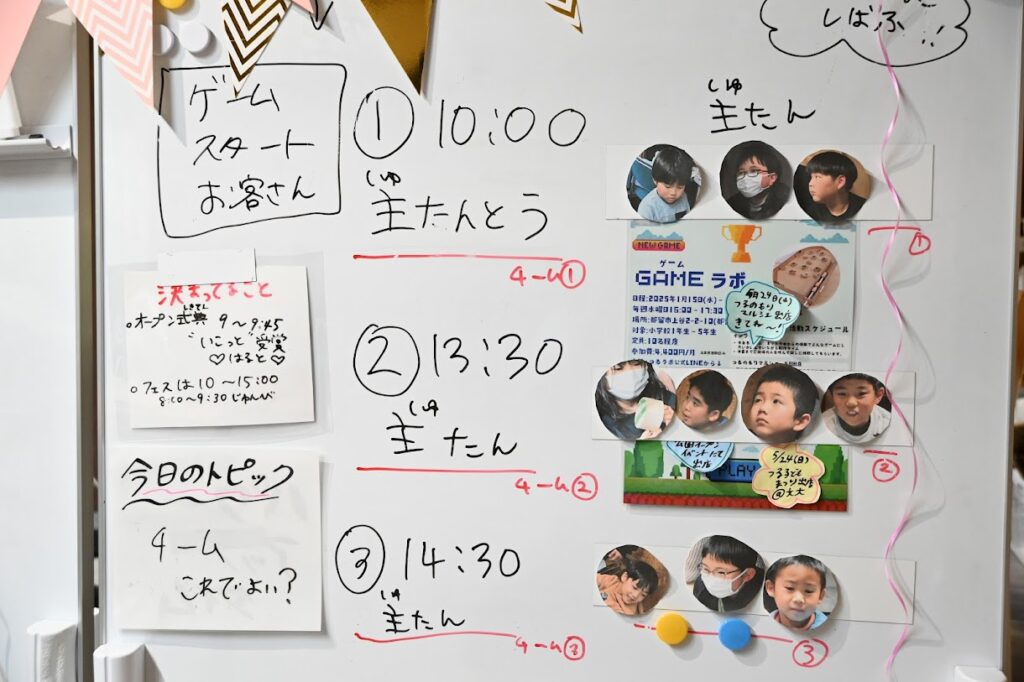 しばふ!!
ゲーム
スタート
お客さん
① 10:00
しゅ
主たんとう
チーム①
② 13:30
しゅ
主たん
チーム②
③ 14:30
しゅ
主たん
チーム③
決まってること
しきてん
○オープン式典 9〜9:45
"いこっと"受賞
♡はると♡
○フェスは10〜15:00
8:10〜9:30じゅんび
今日のトピック
チーム
これでよい?
しゅ
主たん
①
NEW GAME
ゲーム
GAME ラボ
日程:2025年1月15日(水)-
毎週水曜日16:00-17:30
場所:都留市上谷2-2-10
対象:小学校1年生-5年生
定員:10名程度
参加費:4,400円/月
つるのもり
マルシェ出店
きてね〜!
活動スケジュール
②
イベントにて
出店
PLAY
5/24(日)
つるこども
まつり出店
@文大
③